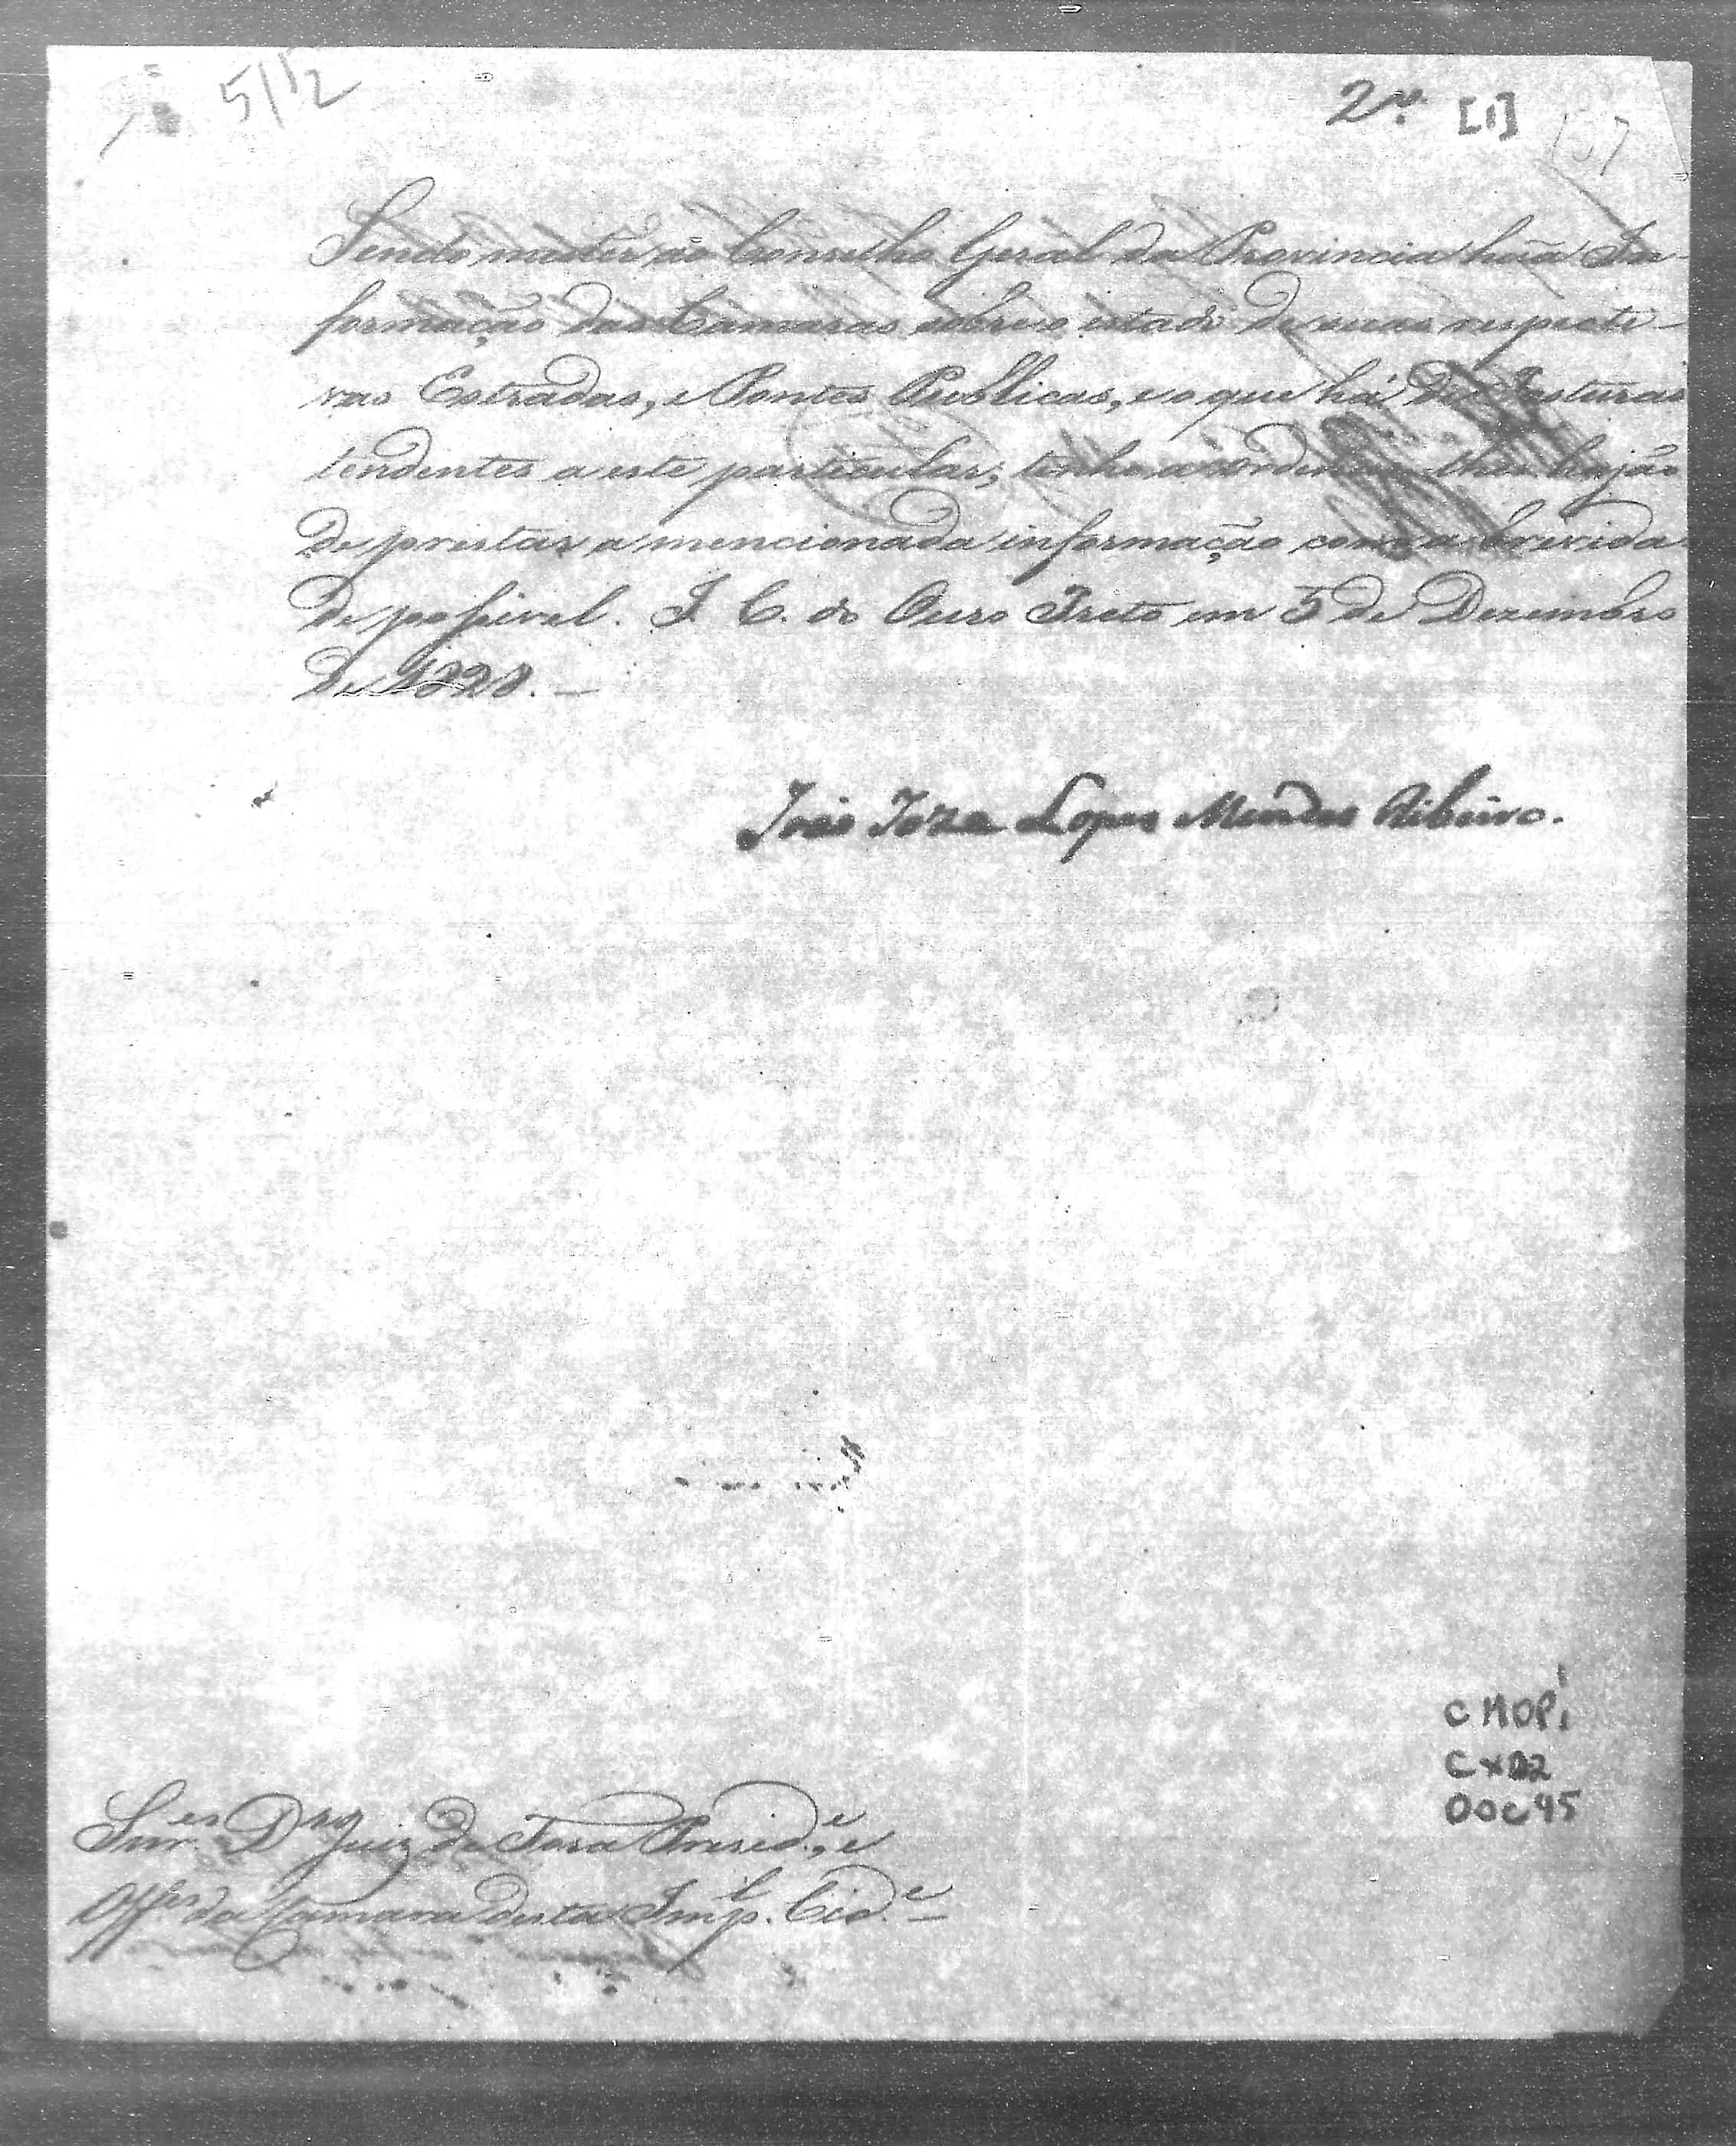 5/12
2ª [1] 137
Sendo mister ao Conselho Geral da Provincia huã In-
formação das Camaras sobre o estado de suas respecti-
vas Estradas, e Pontes Publicas, e o que há de Posturas
tendentes a este particular; tenho a ordenar lhes hajão
de prestar a mencionada informação com a brevida
de possivel. I. C. do Ouro Preto em 5 de Dezembro
de 1828. —
João Joze Lopes Mendes Ribeiro.
CMOP
Cx02
Doc 45
Snr.es D.or Juiz de Fora Presid.e, e
Off.es da Camara desta Imp.l Cid.e —